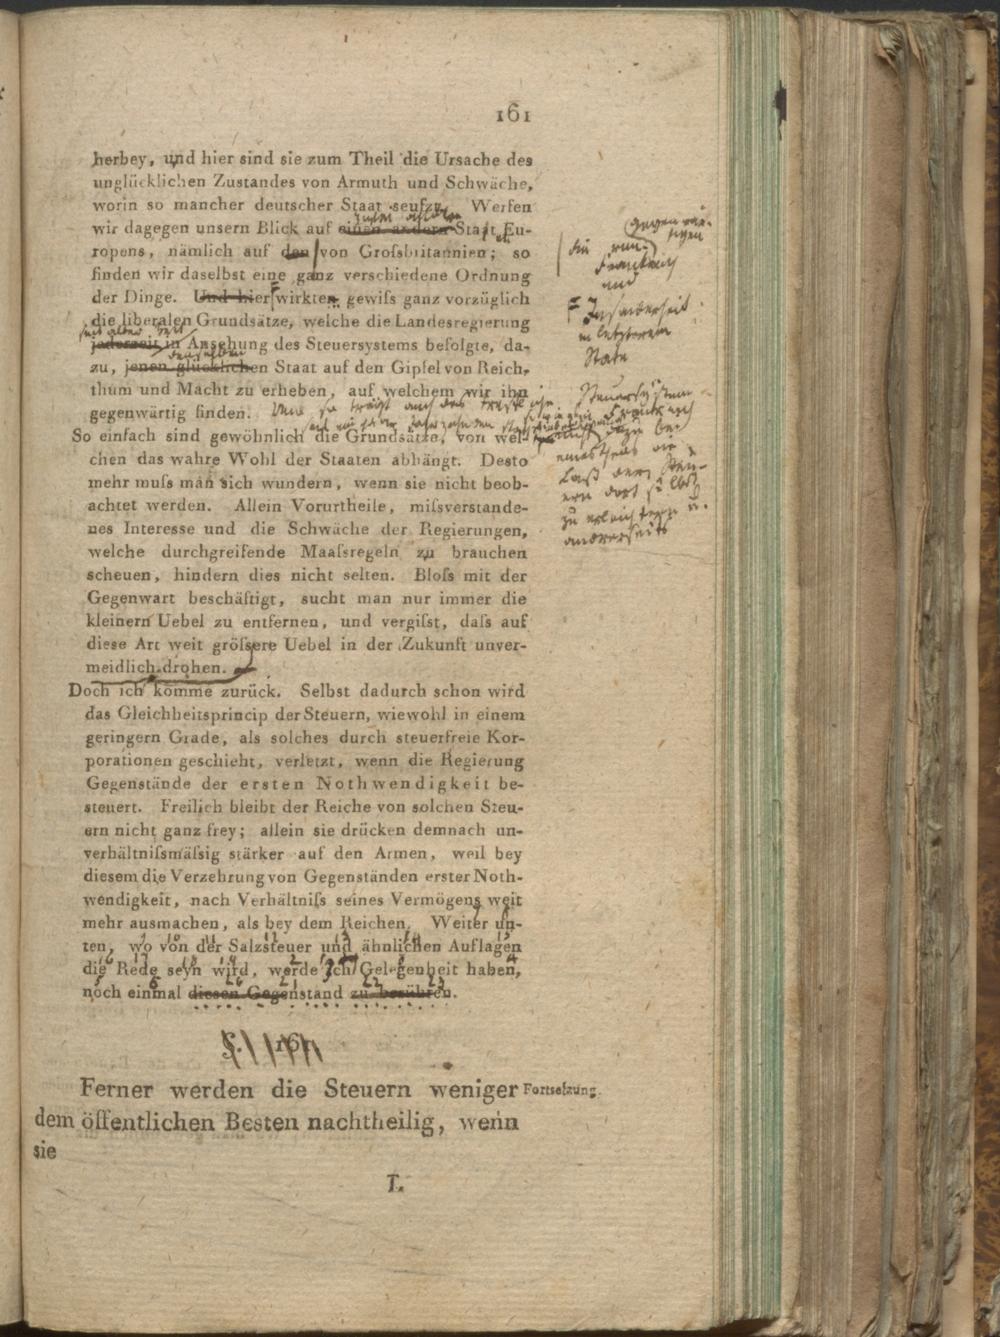 161
herbey, und hier sind sie zum Theil die Ursache des
unglücklichen Zustandes von Armuth und Schwäche,
worin so mancher deutscher Staat seufzt. Werfen
wir dagegen unsern Blick auf einen andern Staat Eu-
ropens, nämlich auf den von Grofsbritannien; so
finden wir daselbst eine ganz verschiedene Ordnung
der Dinge. Und hier wirkten gewifs ganz vorzüglich
die liberalen Grundsätze, welche die Landesregierung
seit alter Zeit
jederzeit in Ansehung des Steuersystems befolgte, da-
denselben
zu, jenen glücklichen Staat auf den Gipfel von Reich-
thum und Macht zu erheben, auf welchem wir ihn
gegenwärtig finden.
So einfach sind gewöhnlich die Grundsätze, von wel-
chen das wahre Wohl der Staaten abhängt. Desto
mehr mufs man sich wundern, wenn sie nicht beob-
achtet werden. Allein Vorurtheile, mifsverstande-
nes Interesse und die Schwäche der Regierungen,
welche durchgreifende Maafsregeln zu brauchen
scheuen, hindern dies nicht selten. Blofs mit der
Gegenwart beschäftigt, sucht man nur immer die
kleinern Uebel zu entfernen, und vergifst, dafs auf
diese Art weit gröfsere Uebel in der Zukunft unver-
meidlich drohen.
Doch ich komme zurück. Selbst dadurch schon wird
das Gleichheitsprincip der Steuern, wiewohl in einem
geringern Grade, als solches durch steuerfreie Kor-
porationen geschieht, verletzt, wenn die Regierung
Gegenstände der ersten Nothwendigkeit be-
steuert. Freilich bleibt der Reiche von solchen Steu-
ern nicht ganz frey; allein sie drücken demnach un-
verhältnifsmäfsig stärker auf den Armen, weil bey
diesem die Verzehrung von Gegenständen erster Noth-
wendigkeit, nach Verhältnifs seines Vermögens weit
mehr ausmachen, als bey dem Reichen. Weiter un-
ten, wo von der Salzsteuer und ähnlichen Auflagen
die Rede seyn wird, werde ich Gelegenheit haben,
noch einmal diesen Gegenstand zu berühren.
§. 161.
Ferner werden die Steuern weniger
Fortsetzung.
dem öffentlichen Besten nachtheilig, wenn
sie
L
gegenwär-
tigen
Frankreich
und
Insonderheit
in letzterem
State